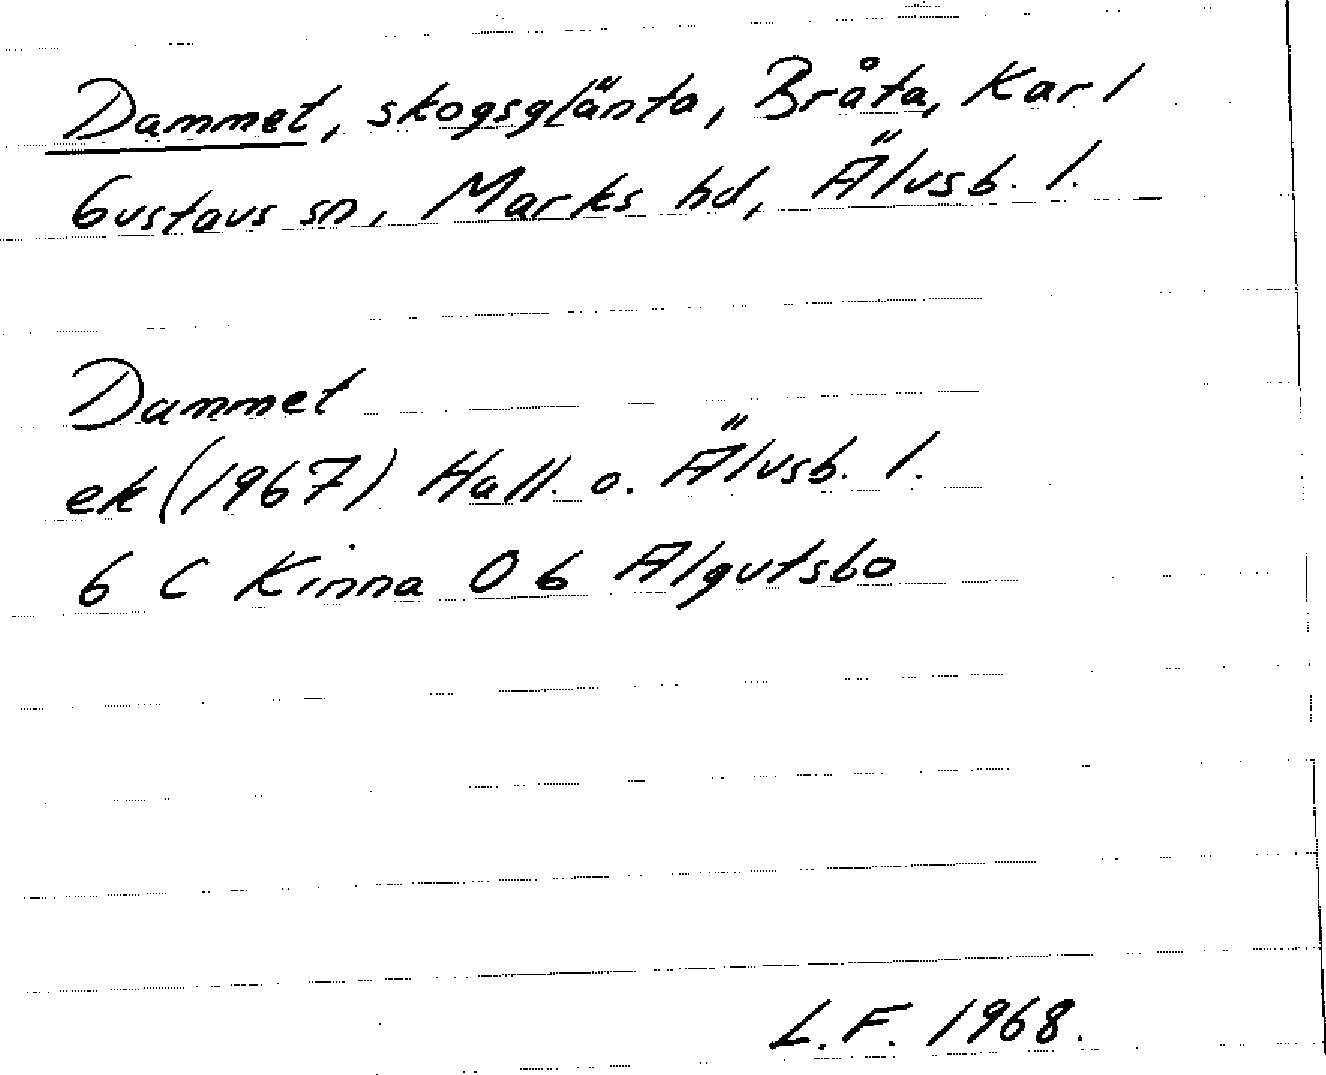 Dammet, skogsglänta, Bråta, Karl
Gustavs sn, Marks hd, Älvsb. l.
Dammet
ek (1967) Hall. o. Älvsb. l.
6 C Kinna 0 6 Algutsbo
L.F. 1968.